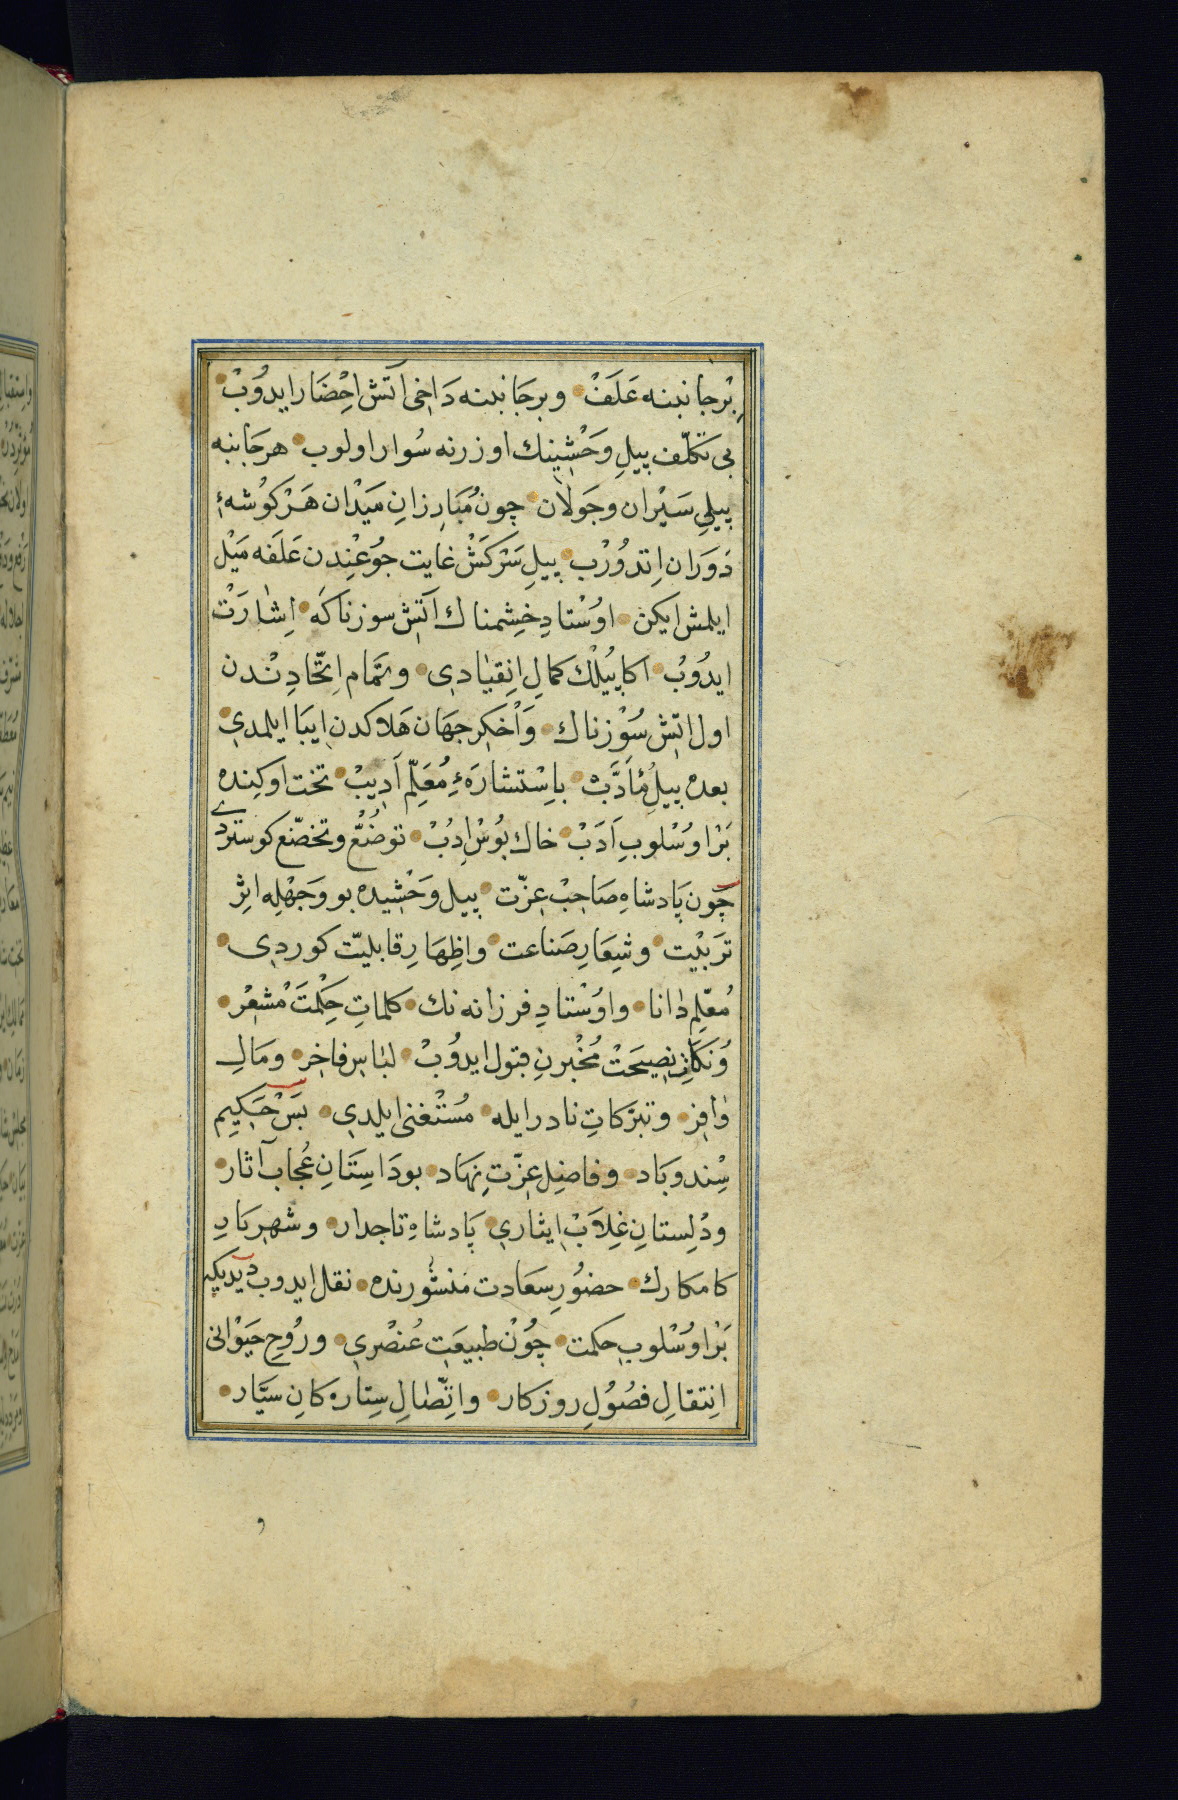 بِرْجانبنه عَلَفْ وبرجَانبنه دَاخِی اٰتش اِحْضَار ایدُوبْ
بی تکلّف پیلِ وَحْشِینك اوزرنه سُوار اولوب هرجَانبنه
پیلیِ سَیْران وجَولَان چون مُبَارِزانِ مَیْدان هَرْ کوْشهٔ
دَوَران اِتدوُرْب پیلِ سَرْکَشْ غایت جُوعْنِدن عَلَفه مَیْل
ایلمش ایکن اوُسْتادِ خِشمناك اٰتشِ سوزناکَه اِشارَتْ
ایدُوبْ اکا پیٔلْك کمالِ اِنقیٰادی وتمام اِتّحادِنْدن
اول اتشِ سُوْزناك وَاْخکرِ جهَان هَلاکدن اِیبَا ایلمدی
بعده پیلِ مُأدَّبْ باِسْتشارَهٔ مُعَلِّم اَدِیبْ تخت اوکِنده
بَرْ اوسُلوبِ اَدَبْ خاك بُوسْ اِدُبْ توضُّع وتخضّع کوستردی
چون پَادشاهِ صَاحِبْ عِزّت پیل وَحْشِیده بو وَجهْله اثرِ
ترَبیْت وشِعَارِ صَناعت واِظِهَارِ قابلیّت کوردی
مُعلّمِ دٰانا واوُسْتادِ فرزانه نك کلماتِ حِکْمَتْ مُشعْر
وُنکاتِ نصِیحَتْ مُخْبرنِ قبول ایدُوبْ لبٰاسِ فاخِر ومَالِ
وٰافِر وتبرّکاتِ نادر ایله مُسْتْغنی ایلدی پسَ حَکِیم
سِندوبَاد وفاضِلِ عِزّت نِهَاد بودَاسِتَانِ عُجاب آثار
ودُلِستانِ غِلاَبْ اِیثاریِ پَادشاهِ تاجدار وشهرِیَارِ
کامکارك حضوُرِ سعَادت منشورنده نقل ایدوب دیدیکه
بَرْ اوسُلوبِ حکمت چُوْن طبیعَتِ عُنصْری ورُوْحِ حَیْوانی
اِنتقالِ فصُوُلِ روزکار واتِّصٰالِ سِتٰارهْ کانِ سیَّار
و